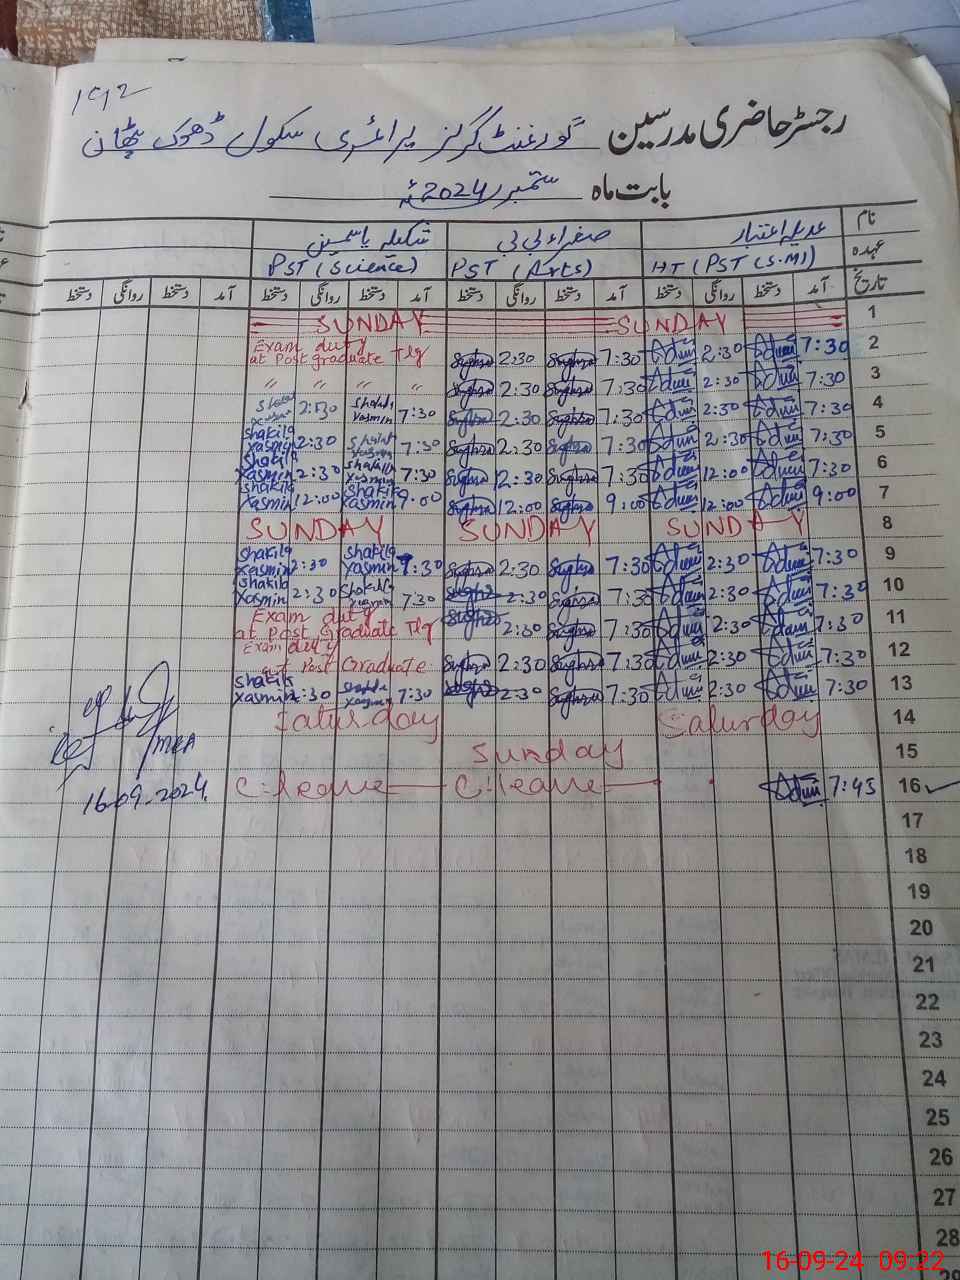 رجسٹر حاضری مدرسین گورنمنٹ گرلز پرائمری سکول ڈھوک پٹھان
بابت ماہ ستمبر 2024ء
نام صغراء بی بی شکیلہ یاسمین
عہدہ HT (PST (S.M) PST (Arts) PST (Science)
تاریخ آمد دستخط روانگی دستخط آمد دستخط روانگی دستخط آمد دستخط روانگی دستخط آمد دستخط روانگی دستخط
1 SUNDAY SUNDAY
2 7:30 2:30 7:30 Sughra 2:30 Sughra Exam duty at Post graduate Tlg
3 7:30 2:30 7:30 Sughra 2:30 Sughra " " " "
4 7:30 2:30 7:30 Sughra 2:30 Sughra 7:30 Shakila Yasmin 2:30 Shakila Yasmin
5 7:30 2:30 7:30 Sughra 2:30 Sughra 7:30 Shakila Yasmin 2:30 Shakila Yasmin
6 7:30 12:00 7:30 Sughra 2:30 Sughra 7:30 Shakila Yasmin 2:30 Shakila Yasmin
7 9:00 12:00 9:00 Sughra 12:00 Sughra 9:00 Shakila Yasmin 12:00 Shakila Yasmin
8 SUNDAY SUNDAY SUNDAY
9 7:30 2:30 7:30 Sughra 2:30 Sughra 7:30 Shakila Yasmin 2:30 Shakila Yasmin
10 7:30 2:30 7:30 Sughra 2:30 Sughra 7:30 Shakila Yasmin 2:30 Shakila Yasmin
11 7:30 2:30 7:30 Sughra 2:30 Sughra Exam duty at Post Graduate Tlg
12 7:30 2:30 7:30 Sughra 2:30 Sughra Exam duty at Post Graduate
13 7:30 2:30 7:30 Sughra 2:30 Sughra 7:30 Shakila Yasmin 2:30 Shakila Yasmin
14 Saturday Saturday
15 Sunday
16 7:45 C.leave C.leave
MEA
16-09-2024
17
18
19
20
21
22
23
24
25
26
27
28
29
16-09-24 09:22